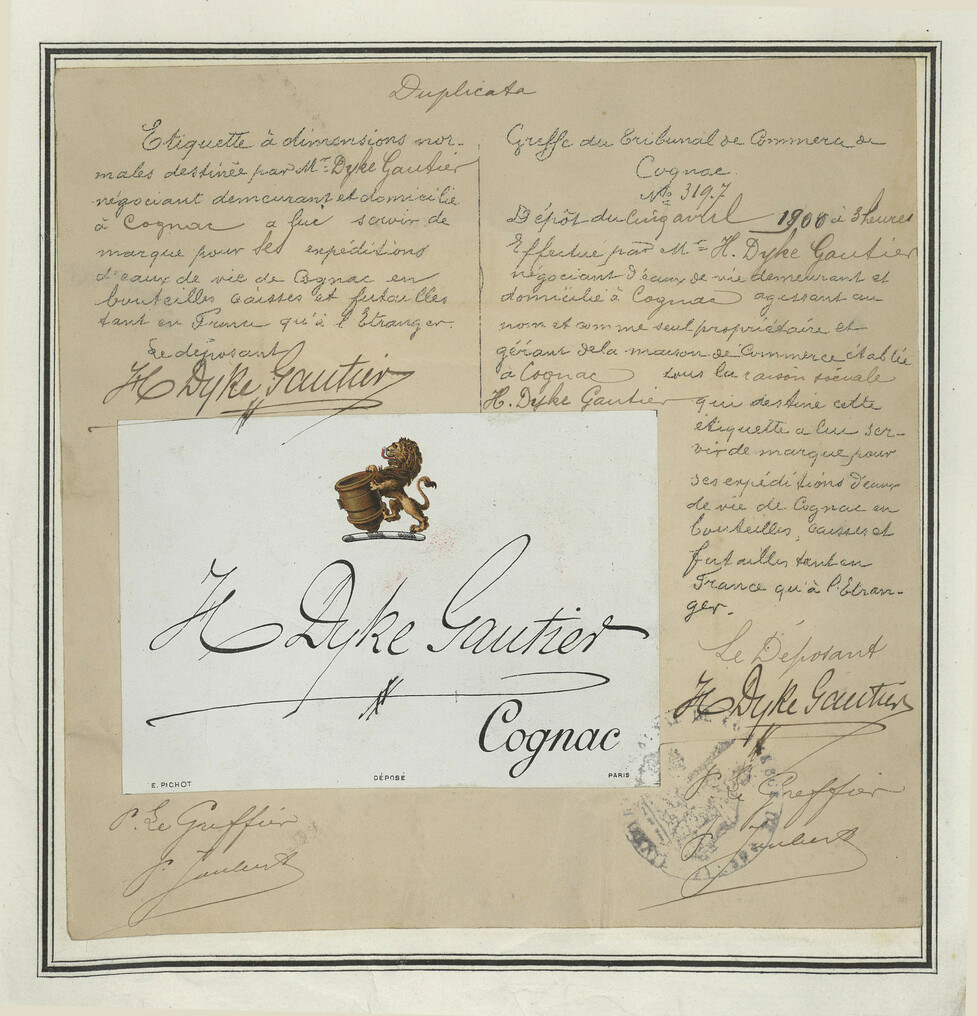 Duplicata
Etiquette à dimensions nor-
males destinée par Mr Dyke Gautier
négociant demeurant et domicilié
à Cognac a lui servir de
marque pour ses expéditions
d'eaux de vie de Cognac en
bouteilles caisses et futailles
tant en France qu'à l'Etranger.
Le déposant
H Dyke Gautier
Greffe du Tribunal de Commerce de
Cognac.
No 3197
Dépôt du Cinq avril 1900 à 3 heures
Effectué par Mr H. Dyke Gautier
négociant d'eaux de vie demeurant et
domicilié à Cognac agissant au
nom et comme seul propriétaire et
gérant de la maison de Commerce établie
à Cognac sous la raison sociale
H. Dyke Gautier qui destine cette
étiquette a lui ser-
vir de marque pour
ses expéditions d'eaux
de vie de Cognac en
bouteilles, caisses et
futailles tant en
France qu'à l'Etran-
ger.
Le Déposant
H Dyke Gautier
P. Le Greffier
H Dyke Gautier
Cognac
E. PICHOT
DÉPOSÉ
PARIS
P. Le Greffier